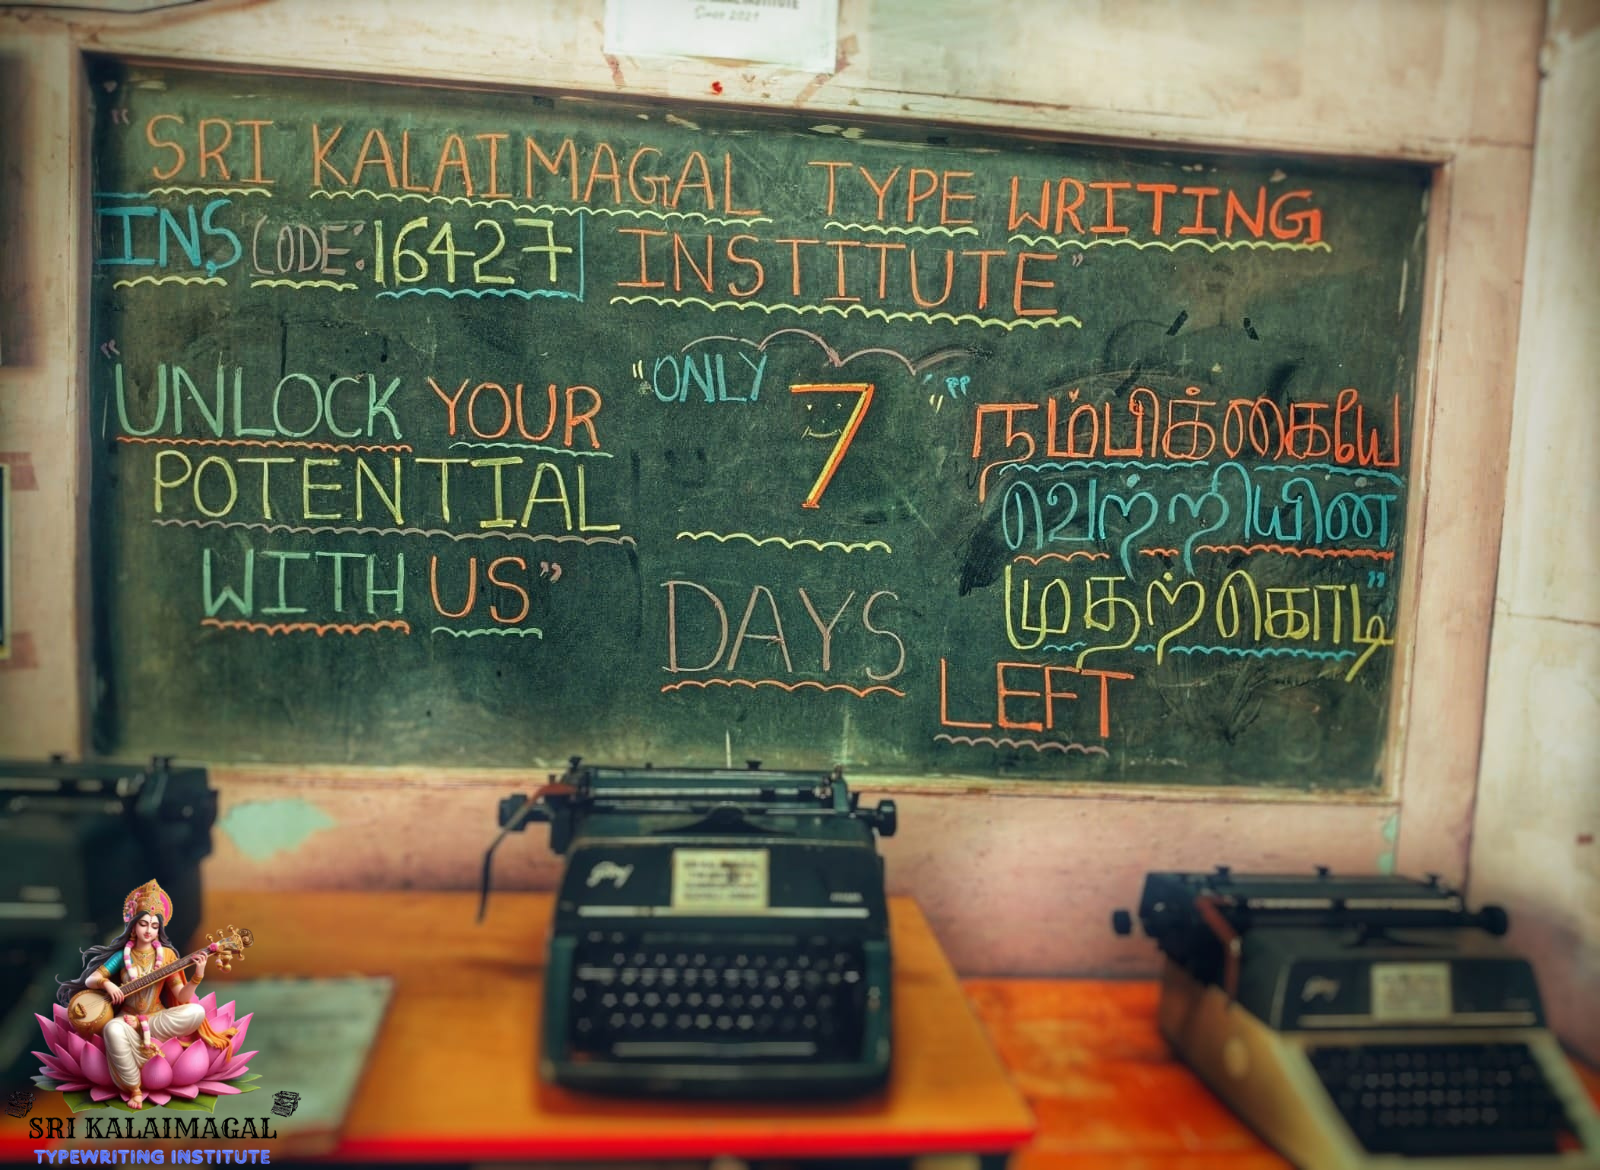 INSTITUTE
Since 2021
"SRI KALAIMAGAL TYPE WRITING
INS CODE: 16427 INSTITUTE"
"UNLOCK YOUR
POTENTIAL
WITH US"
"ONLY 7 "
DAYS
LEFT
"நம்பிக்கையே
வெற்றியின்
முதற்கொடி"
Godrej
Godrej
SRI KALAIMAGAL
TYPEWRITING INSTITUTE